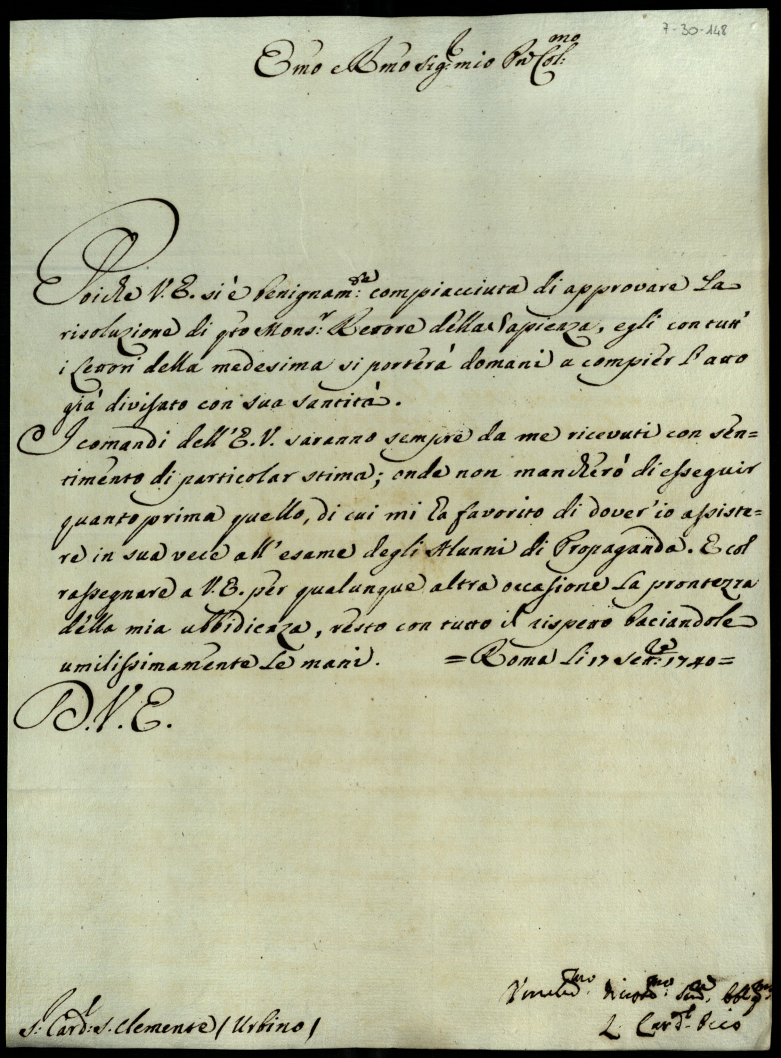 7-30-148
Emo e Rmo Sig.r mio Pne Col.mo
Poiche V.E. si è benignam.te compiacciuta di approvare la
risoluzione di qto Mons.r Rettore della Sapienza, egli con tutt'
i Lettori della medesima si porterà domani a compier l'atto
già divisato con sua santità.
I comandi dell'E.V. saranno sempre da me ricevuti con sen=
timento di particolar stima; onde non mancherò di esseguir
quanto prima quello, di cui mi ha favorito di dover'io assiste=
re in sua vece all'esame degli Alunni di Propaganda. E col
rassegnare a V.E. per qualunque altra occasione la prontezza
della mia ubbidienza, resto con tutto il rispetto baciandole
umilissimamente le mani. = Roma li 17 Set.bre 1740 =
D.V.E.
S.r Card.l S. Clemente (Urbino)
L. Card.l Pico